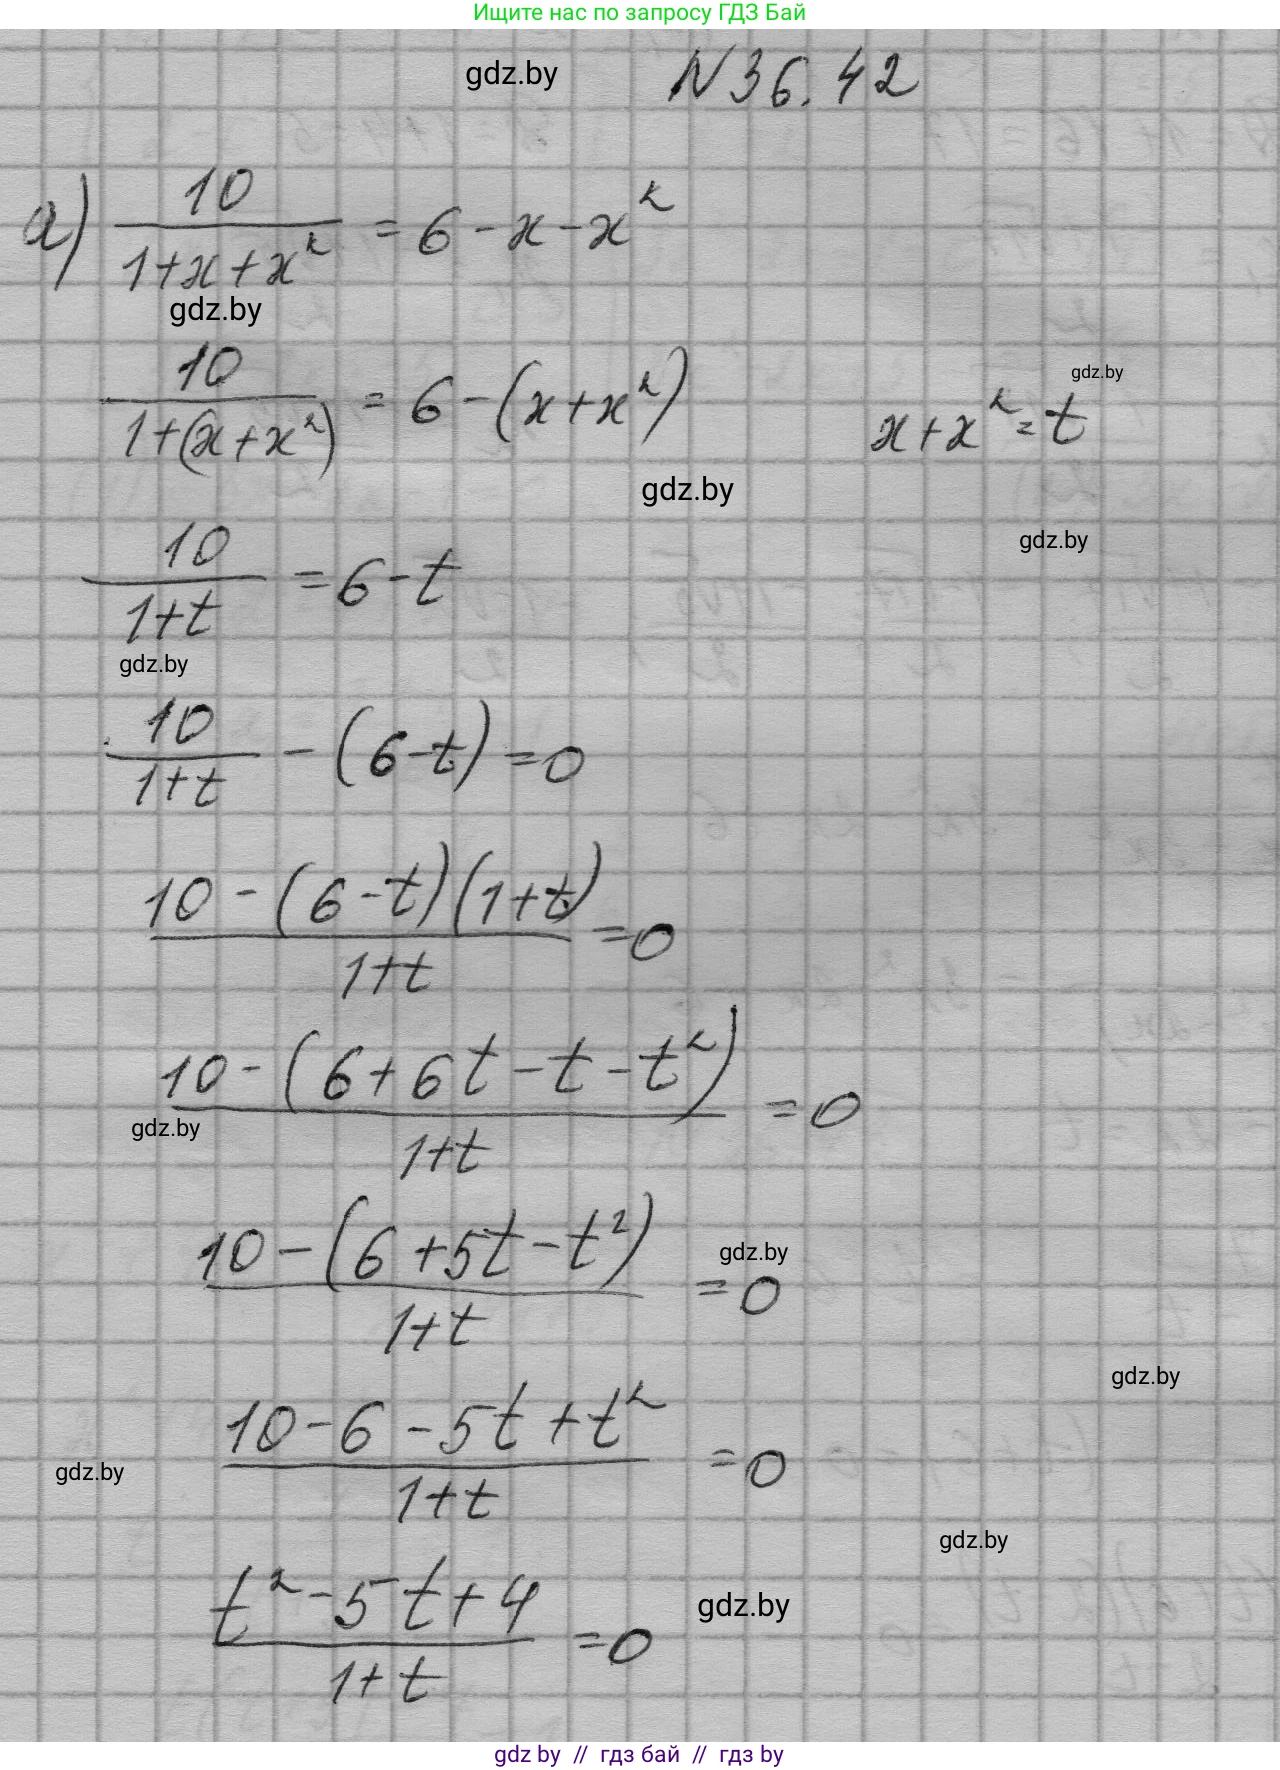 Ищите нас по запросу ГДЗ Бай
gdz.by
N36.42
а) 10/(1+x+x²) = 6-x-x²
gdz.by
10/(1+(x+x²)) = 6-(x+x²)
gdz.by
x+x²=t
gdz.by
gdz.by
10/(1+t) = 6-t
gdz.by
10/(1+t) - (6-t) = 0
(10-(6-t)(1+t))/(1+t) = 0
(10-(6+6t-t-t²))/(1+t) = 0
gdz.by
(10-(6+5t-t²))/(1+t) = 0
gdz.by
gdz.by
(10-6-5t+t²)/(1+t) = 0
gdz.by
gdz.by
(t²-5t+4)/(1+t) = 0
gdz.by
gdz by // гдз бай // гдз by